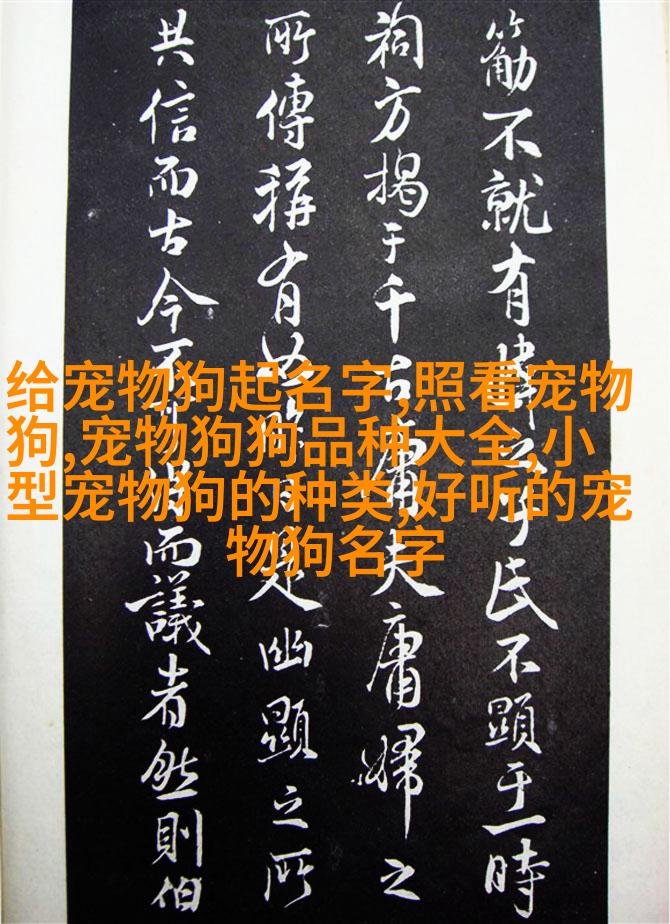 给宠物狗起名字,照看宠物
狗,宠物狗狗品种大全,小
型宠物狗的种类,好听的宠
物狗名字
不就有之氏不顯于一時
祠方揭于千古庸夫庸婦之
所傳稱有是幽顯之所
共信而古今而議者然則伯